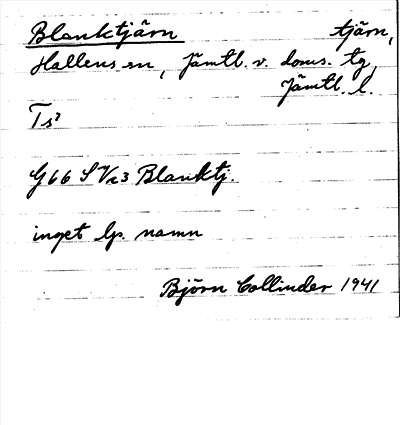 Blanktjärn tjärn,
Hallens sn, Jämtl. v. doms. tg,
Jämtl. l.
Ts?
G66 SVc3 Blanktj.
inget lp. namn
Björn Collinder 1941